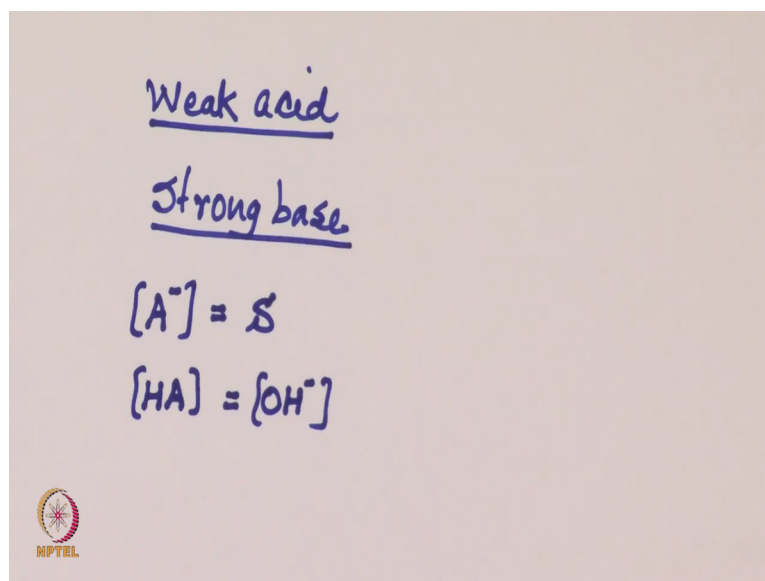 Weak acid
Strong base
[A⁻] = S
[HA] = [OH⁻]
NPTEL